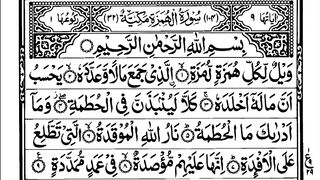 اٰیاتھا ۹ (۱۰۴) سُوْرَةُ الْهُمَزَةِ مَكِّيَّةٌ (۳۲) رکوعھا ۱
بِسْمِ اللّٰهِ الرَّحْمٰنِ الرَّحِيْمِ
وَيْلٌ لِّكُلِّ هُمَزَةٍ لُّمَزَةِ ۙ۝۱ الَّذِيْ جَمَعَ مَالًا وَّعَدَّدَهٗ ۙ۝۲ يَحْسَبُ
اَنَّ مَالَهٗۤ اَخْلَدَهٗ ۚ۝۳ كَلَّا لَيُنْۢبَذَنَّ فِي الْحُطَمَةِ ۖ۝۴ وَمَاۤ
اَدْرٰىكَ مَا الْحُطَمَةُ ؕ۝۵ نَارُ اللّٰهِ الْمُوْقَدَةُ ۙ۝۶ الَّتِيْ تَطَّلِعُ
عَلَى الْاَفْـِٕدَةِ ؕ۝۷ اِنَّهَا عَلَيْهِمْ مُّؤْصَدَةٌ ۙ۝۸ فِيْ عَمَدٍ مُّمَدَّدَةٍ ۠۝۹